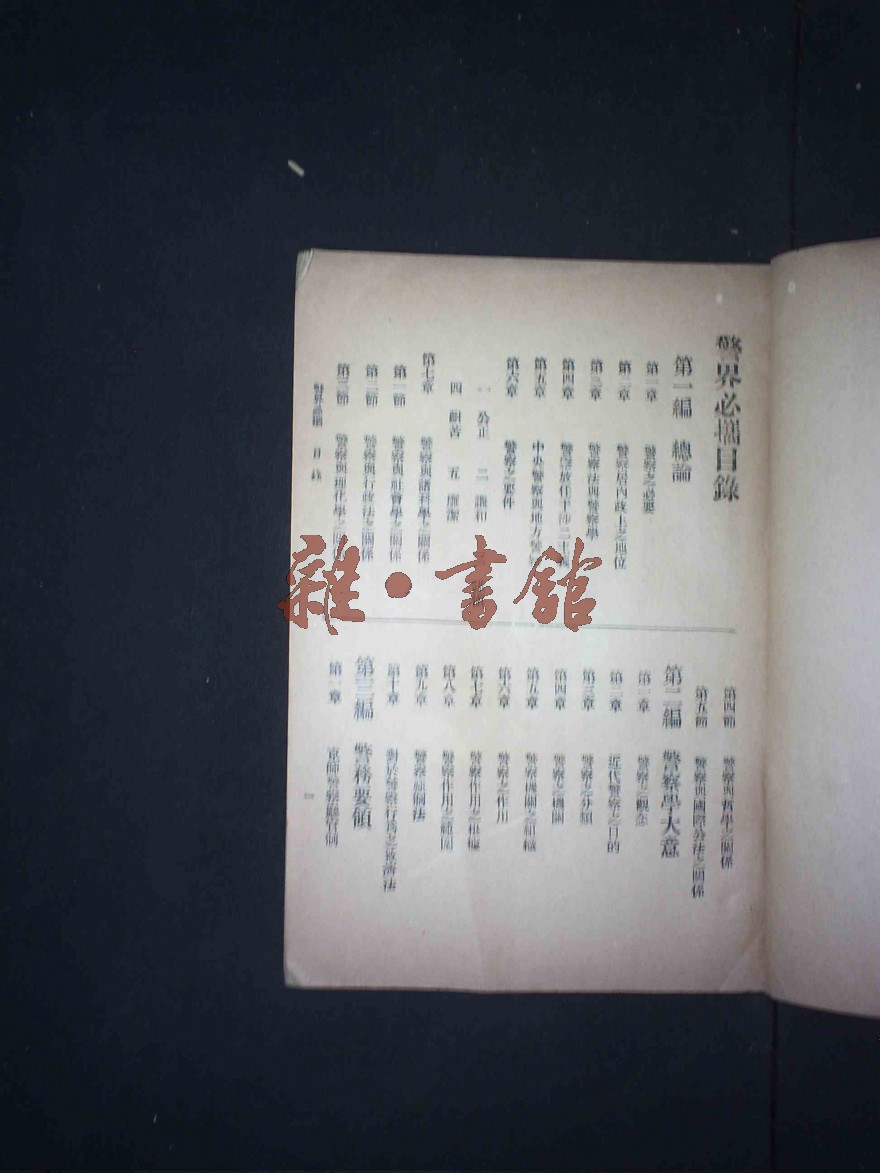 警界必攜目錄
第一編 總論
第一章 警察之必要
第二章 警察居內政上之地位
第三章 警察法與警察學
第四章 警察放任干涉二主義
第五章 中央警察與地方警察
第六章 警察之要件
一 公正 二 謙和
四 耐苦 五 廉潔
第七章 警察與諸科學之關係
第一節 警察與社會學之關係
第二節 警察與行政法之關係
第三節 警察與理化學之
第四節 警察與哲學之關係
第五節 警察與國際公法之關係
第二編 警察學大意
第一章 警察之觀念
第二章 近代警察之目的
第三章 警察之分類
第四章 警察之機關
第五章 警察機關之組織
第六章 警察之作用
第七章 警察作用之根據
第八章 警察作用之範圍
第九章 警察制法
第十章 對於警察行為之救濟法
第三編 警務要領
第一章 京師警察廳官制
警界必攜 目錄
一
雜·書館